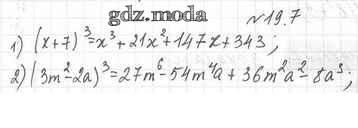 gdz.moda
№19.7
1) (x+7)³=x³+21x²+147x+343;
2) (3m²-2a)³=27m⁶-54m⁴a+36m²a²-8a³;